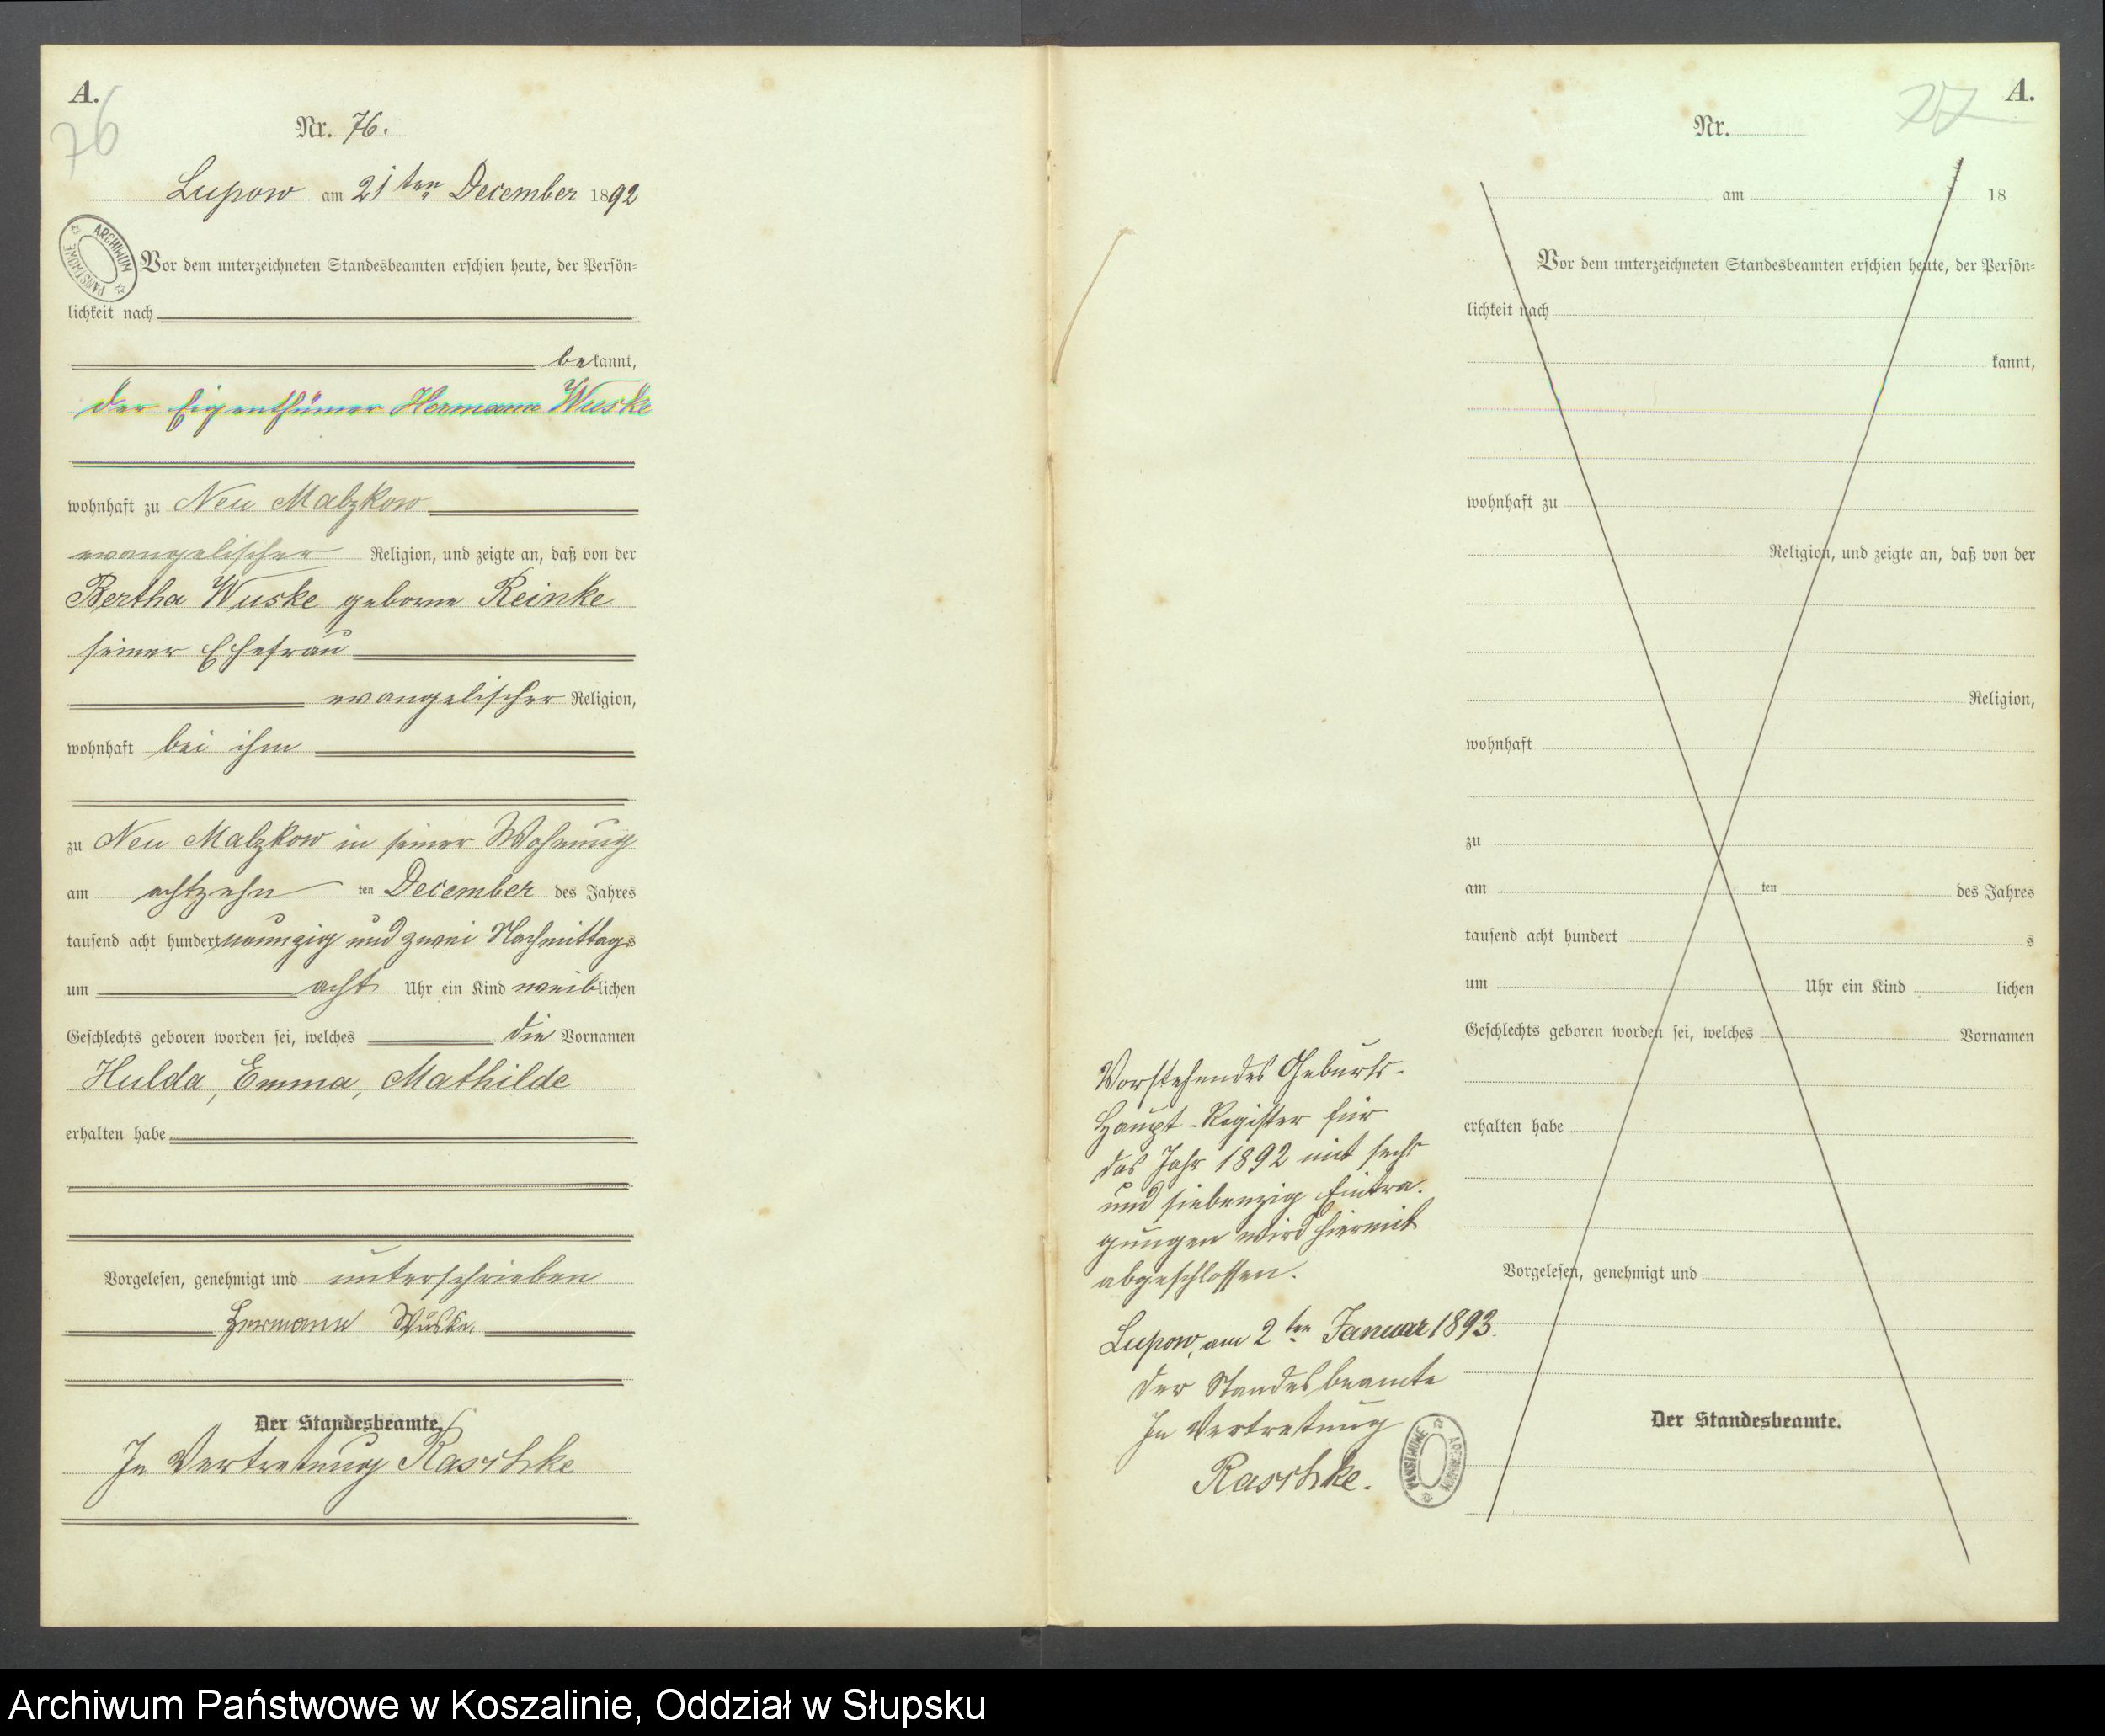 A.
76
Nr. 76.
Lupow am 21ten December 1892
ARCHIWUM PAŃSTWOWE
Vor dem unterzeichneten Standesbeamten erschien heute, der Persön-
lichkeit nach
bekannt,
der Eigenthümer Hermann Wuske
wohnhaft zu Neu Malzkow
evangelischer Religion, und zeigte an, daß von der
Bertha Wuske geborne Reinke
seiner Ehefrau
evangelischer Religion,
wohnhaft bei ihm
zu Neu Malzkow in seiner Wohnung
am achtzehn ten December des Jahres
tausend acht hundert neunzig und zwei Nachmittags
um acht Uhr ein Kind weiblichen
Geschlechts geboren worden sei, welches die Vornamen
Hulda, Emma, Mathilde
erhalten habe
Vorgelesen, genehmigt und unterschrieben
Hermann Wuske.
Der Standesbeamte.
In Vertretung Raschke
Vorstehendes Geburts-
Haupt-Register für
das Jahr 1892 mit sechs
und siebenzig Eintra-
gungen wird hiermit
abgeschlossen.
Lupow, am 2ten Januar 1893.
Der Standesbeamte
In Vertretung
Raschke.
ARCHIWUM PAŃSTWOWE
A.
77
Nr.
am 18
Vor dem unterzeichneten Standesbeamten erschien heute, der Persön-
lichkeit nach
kannt,
wohnhaft zu
Religion, und zeigte an, daß von der
Religion,
wohnhaft
zu
am ten des Jahres
tausend acht hundert s
um Uhr ein Kind lichen
Geschlechts geboren worden sei, welches Vornamen
erhalten habe
Vorgelesen, genehmigt und
Der Standesbeamte.
Archiwum Państwowe w Koszalinie, Oddział w Słupsku